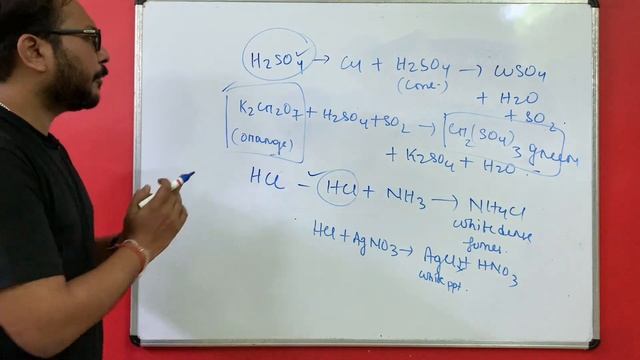 H2SO4 → Cu + H2SO4 → CuSO4
(conc.) + H2O
+ SO2
K2Cr2O7 + H2SO4 + SO2 → Cr2(SO4)3 green
(orange) + K2SO4 + H2O
HCl - HCl + NH3 → NH4Cl
white dense
fumes.
HCl + AgNO3 → AgCl + HNO3
white ppt.